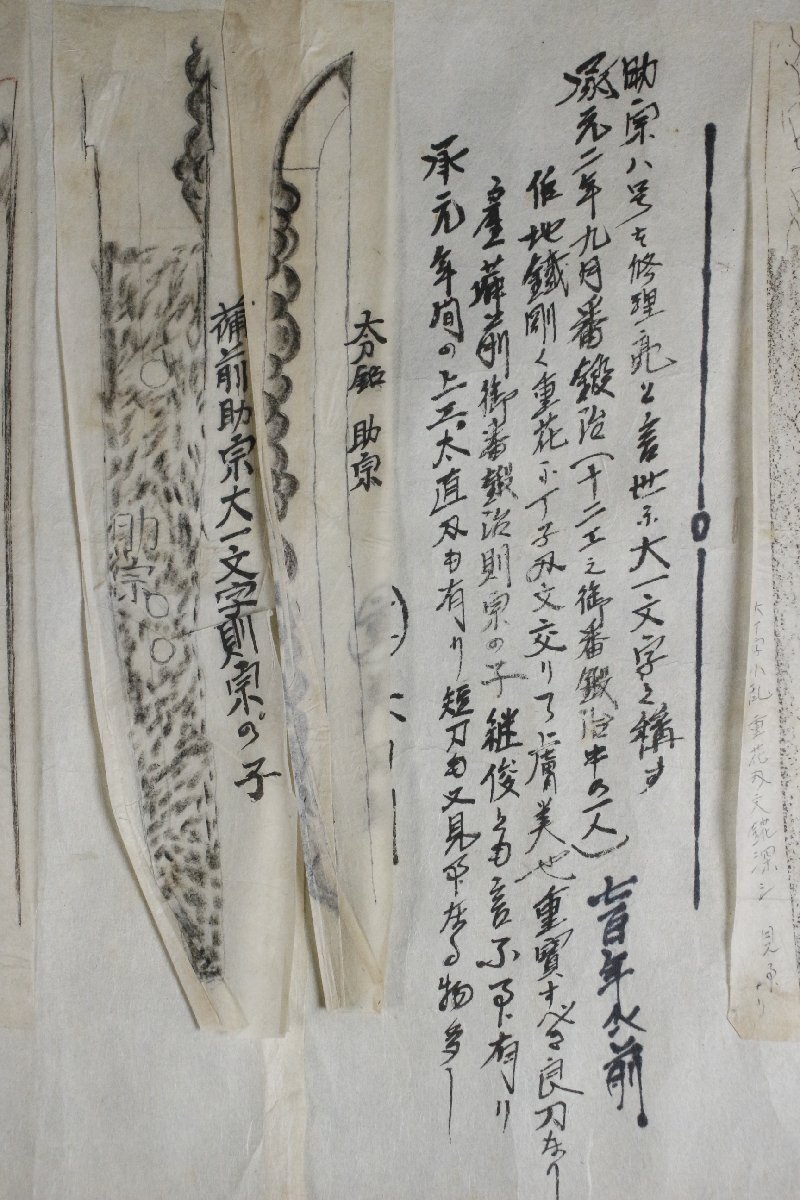 助宗ハ号を修理亮と言世に大一文字と称す
承元二年九月番鍛治(十二工之御番鍛治中の一人)
七百年以前
作地鐵剛く重花に丁子刃文交りて上膚美也重宝すべき良刀なり
備前御番鍛治則宗の子継俊とも言ふ事有り
承元年間の上工太直刃も有り短刀も又見事なる物多し
太刀銘 助宗
備前助宗大一文字則宗の子
助宗
重花刃文錵深シ 見事ナリ